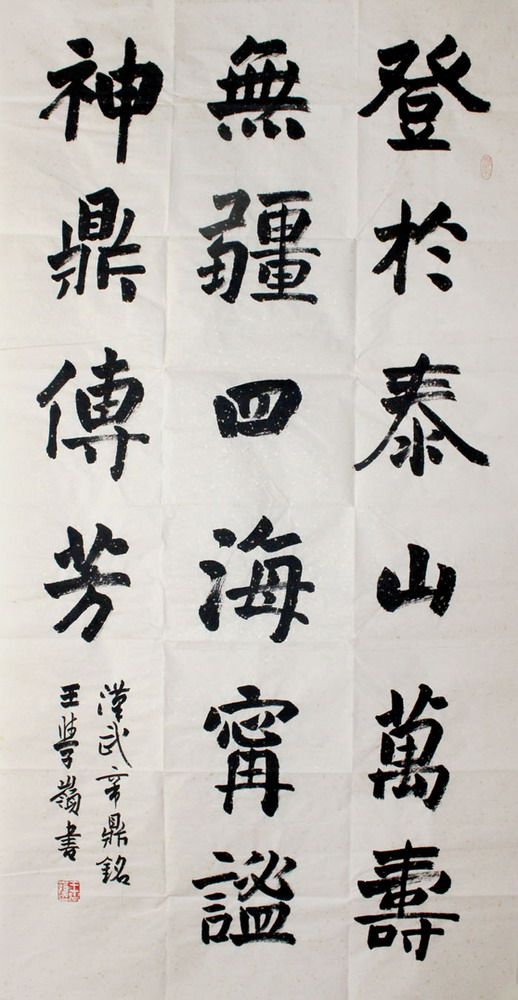 登於泰山萬壽
無疆四海甯謐
神鼎傳芳
漢武帝鼎銘
王學嶺書